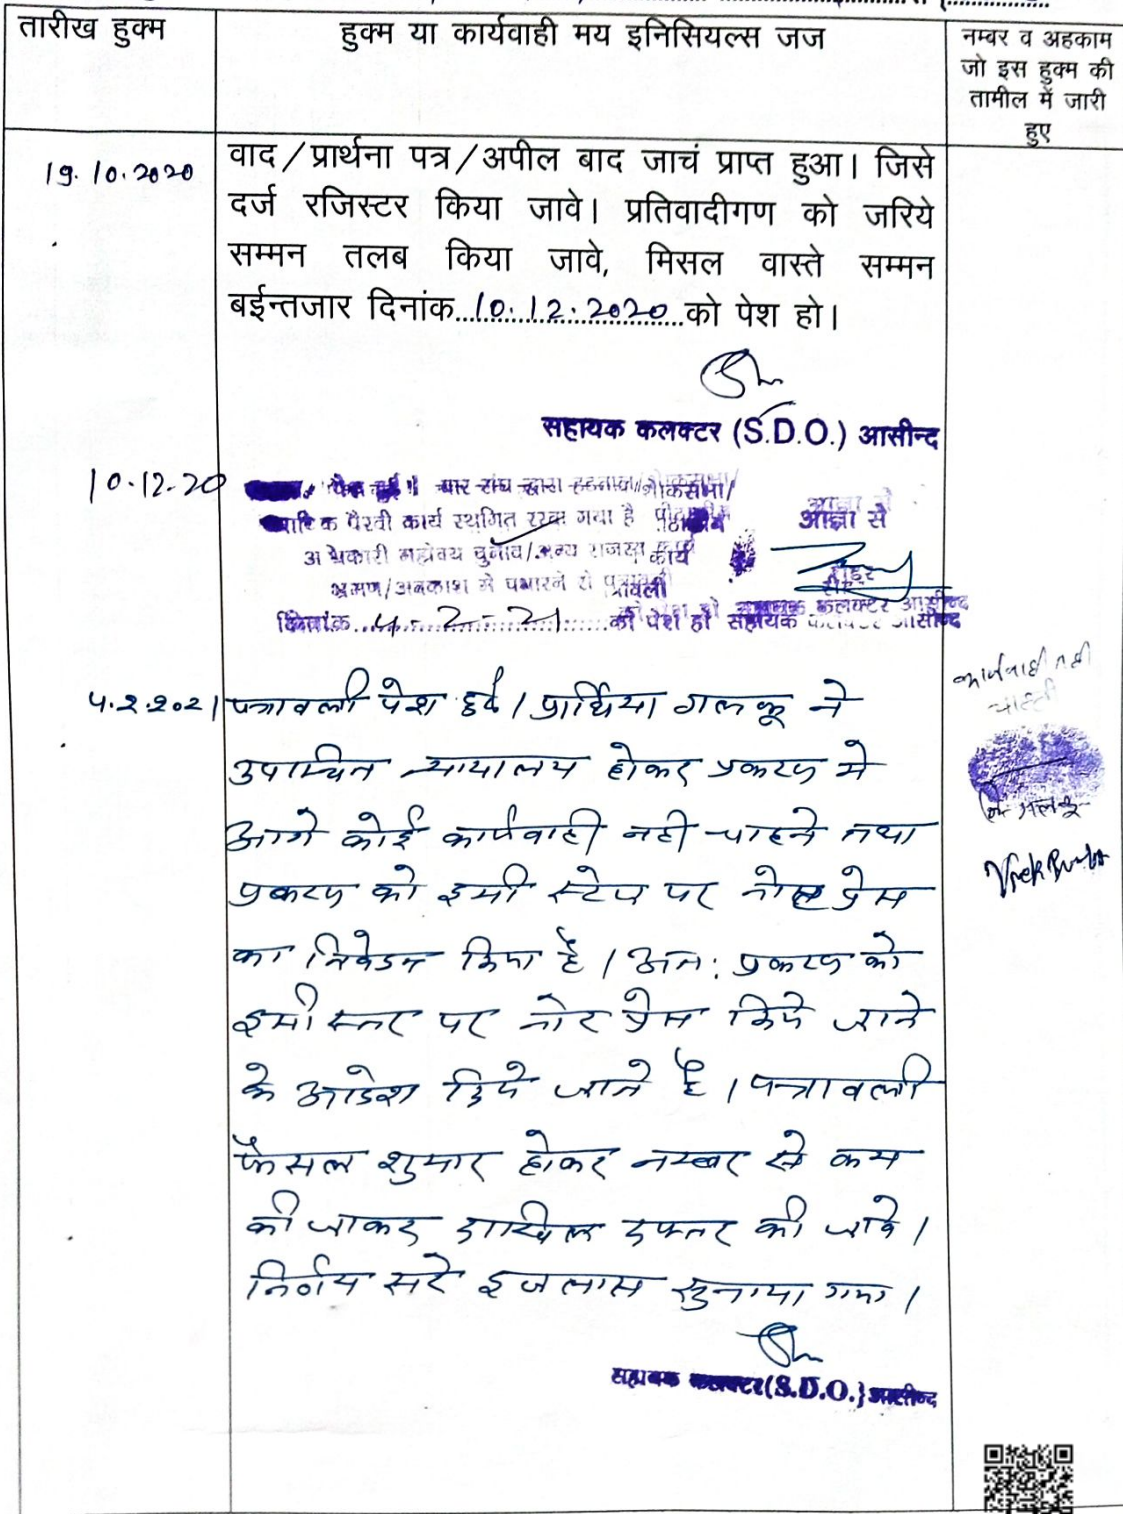 तारीख हुक्म
हुक्म या कार्यवाही मय इनिसियल्स जज
नम्बर व अहकाम
जो इस हुक्म की
तामील में जारी
हुए
19.10.2020
वाद/प्रार्थना पत्र/अपील बाद जाचं प्राप्त हुआ। जिसे
दर्ज रजिस्टर किया जावे। प्रतिवादीगण को जरिये
सम्मन तलब किया जावे, मिसल वास्ते सम्मन
बईन्तजार दिनांक...10.12.2020...को पेश हो।
सहायक कलक्टर (S.D.O.) आसीन्द
10.12.20
बार संघ द्वारा हड़ताल/शोकसभा/
पैरवी कार्य स्थगित रखा गया है
चुनाव/अन्य राजस्व कार्य
भ्रमण/अवकाश में पधारने से पत्रावली
दिनांक...4-2-21...को पेश हो
आज्ञा से
रीडर
सहायक कलक्टर आसीन्द
4.2.2021
पत्रावली पेश हुई। प्रार्थिया गलकू ने
उपस्थित न्यायालय होकर प्रकरण मे
आगे कोई कार्यवाही नही चाहने तथा
प्रकरण को इसी स्टेज पर नोट प्रेस
का निवेदन किया है। अत: प्रकरण को
इसी स्तर पर नोट प्रेस किये जाने
के आदेश दिये जाते है। पत्रावली
फैसल शुमार होकर नम्बर से कम
की जाकर दाखिल दफ्तर की जावे।
निर्णय सरे इजलास सुनाया गया।
सहायक कलक्टर (S.D.O.) आसीन्द
कार्यवाही नही
चाहती
गलकू